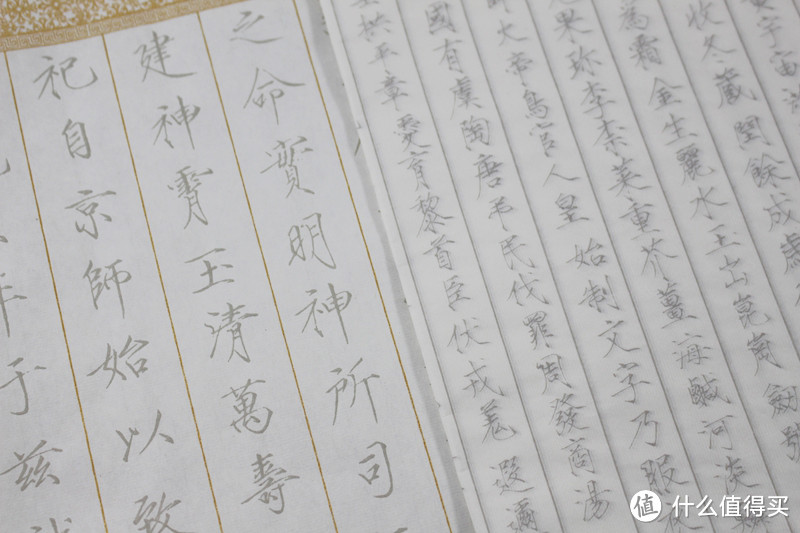 宇宙
收冬藏閏餘成歲
為霜金生麗水玉出崑崗劍號
果珍李柰菜重芥薑海鹹河淡
火帝鳥官人皇始制文字乃服
國有虞陶唐弔民伐罪周發商湯
拱平章愛育黎首臣伏戎羌遐邇
之命實明神所司
建神霄玉清萬壽
祀自京師始以致
年于茲
值 什么值得买